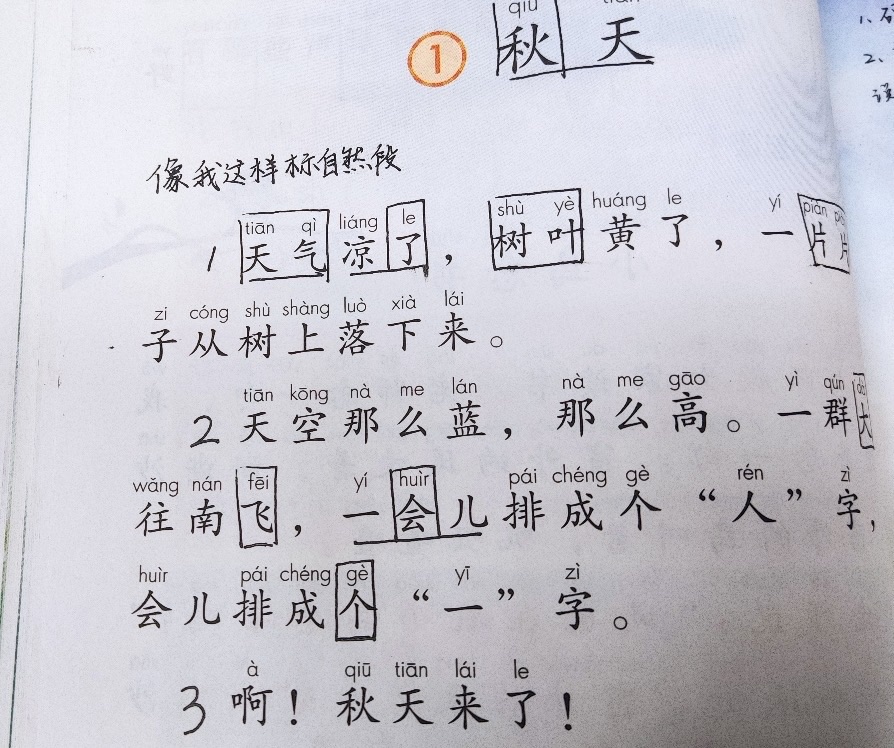 qiū
1 秋 天
1、
2、
像我这样标自然段
tiān qì liáng le shù yè huáng le yí piàn
1 天气凉了，树叶黄了，一片片
zi cóng shù shàng luò xià lái
子从树上落下来。
tiān kōng nà me lán nà me gāo yì qún
2 天空那么蓝，那么高。一群大
wǎng nán fēi yí huìr pái chéng gè rén zì
往南飞，一会儿排成个“人”字，
huìr pái chéng gè yī zì
会儿排成个“一”字。
à qiū tiān lái le
3 啊！秋天来了！